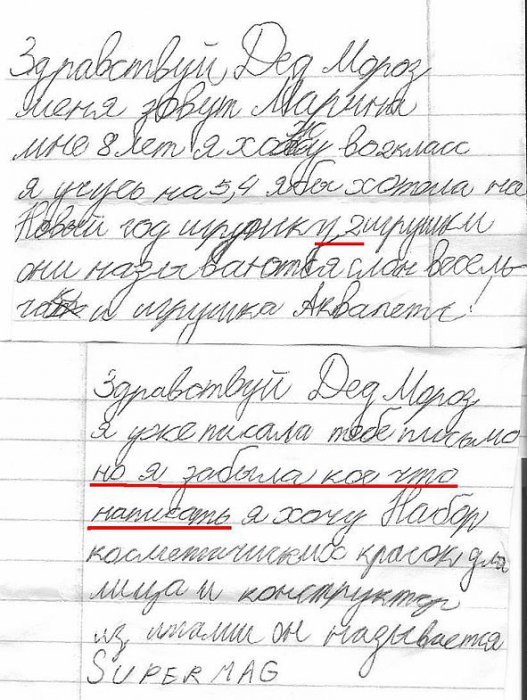 Здравствуй Дед Мороз
меня зовут Марина
мне 8 лет я хожу во 2 класс
я учусь на 5,4 я бы хотела на
Новый год игрушку 2 игрушки
они называются слон весель
и игрушка Аквапеты!
Здравствуй Дед Мороз
я уже писала тебе письмо
но я забыла кое что
написать я хочу Набор
косметических красок для
лица и конструктор
из он называется
SUPERMAG